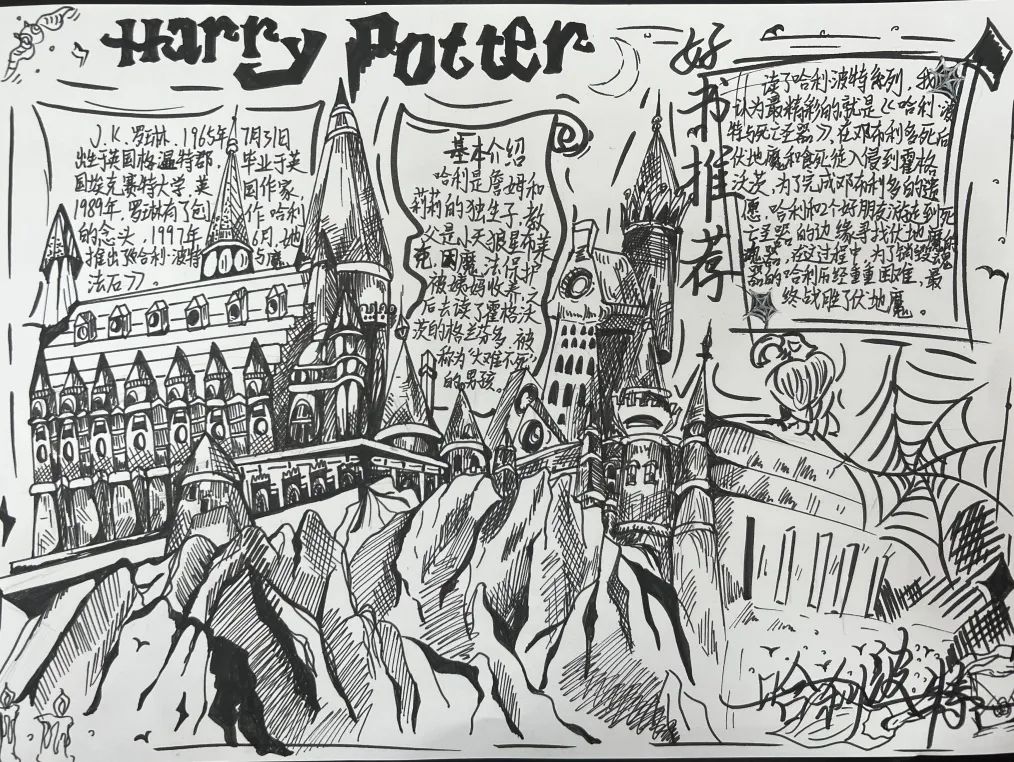 Harry Potter
好书推荐
J.K.罗琳,1965年7月31日
出生于英国格温特郡,毕业于英
国埃克赛特大学,英国作家,
1989年,罗琳有了创作哈利
的念头,1997年6月,她
推出《哈利·波特与魔
法石》。
基本介绍
哈利是詹姆和
莉莉的独生子,教
父是小天狼星布莱
克,因魔法保护
被姨妈收养,
后去读了霍格沃
茨的格兰芬多,被
称为"大难不死
的男孩。
读了哈利·波特系列,我
认为最精彩的就是《哈利·波
特与死亡圣器》,在邓布利多死后
伏地魔和食死徒入侵到霍格
沃茨,为了完成邓布利多的遗
愿,哈利和2个好朋友游走到死
亡圣器的边缘寻找伏地魔的
魂器,在过程中,为了销毁魂
器的哈利历经重重困难,最
终战胜了伏地魔。
哈利波特